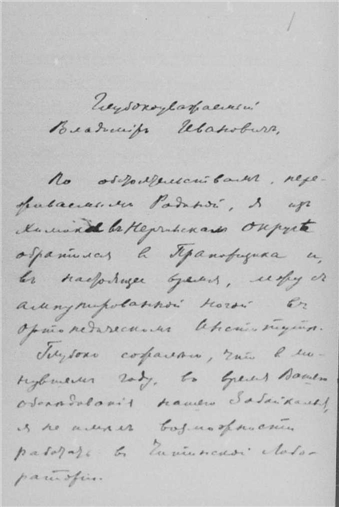 Глубокоуважаемый
Владиміръ Ивановичъ,
По обстоятельствамъ, пере-
живаемымъ Родиной, я изъ
Химика въ Нерчинскомъ Округѣ
обратился в Прапорщика и,
въ настоящее время, лежу съ
ампутированной ногой въ
Ортопедическомъ Институтѣ.
Глубоко сожалею, что в ми-
нувшемъ году, во время Вашего
обследования нашего Забайкалья,
я не имелъ возможности
работать в Читинской Лабо-
раторіи.